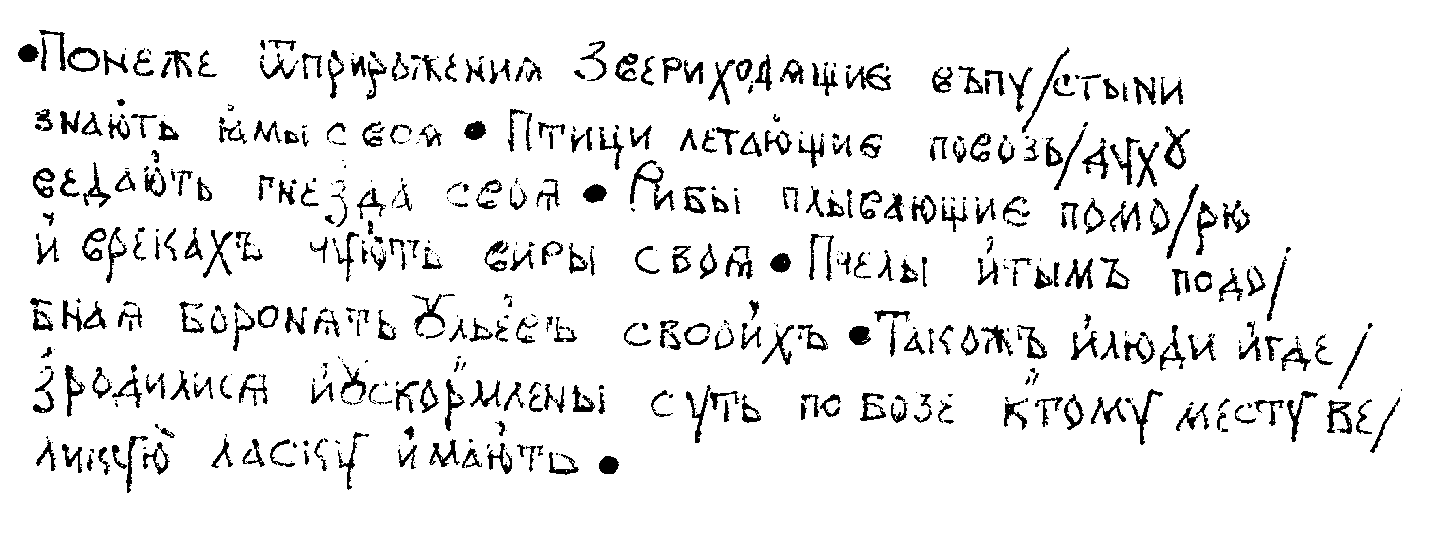 •Понеже ѿприрожения Звериходѧщие въпу/стыни
знаю́ть ꙗ́мы своя • Птици летаю́щие повозъ/духꙋ
ведаю́ть гнезда своꙗ • Рибы плываюшие помо/рю
и́ врекахъ чую́ть виры своꙗ • Пчелы и́тымъ подо/
бнаꙗ боронѧть Ꙋлье́въ свои́хъ • Такожъ и́люди и́где/
зродилисꙗ и́ꙋскормлены суть по возе ктому месту ве/
ликую̀ ласку и́маю́ть •